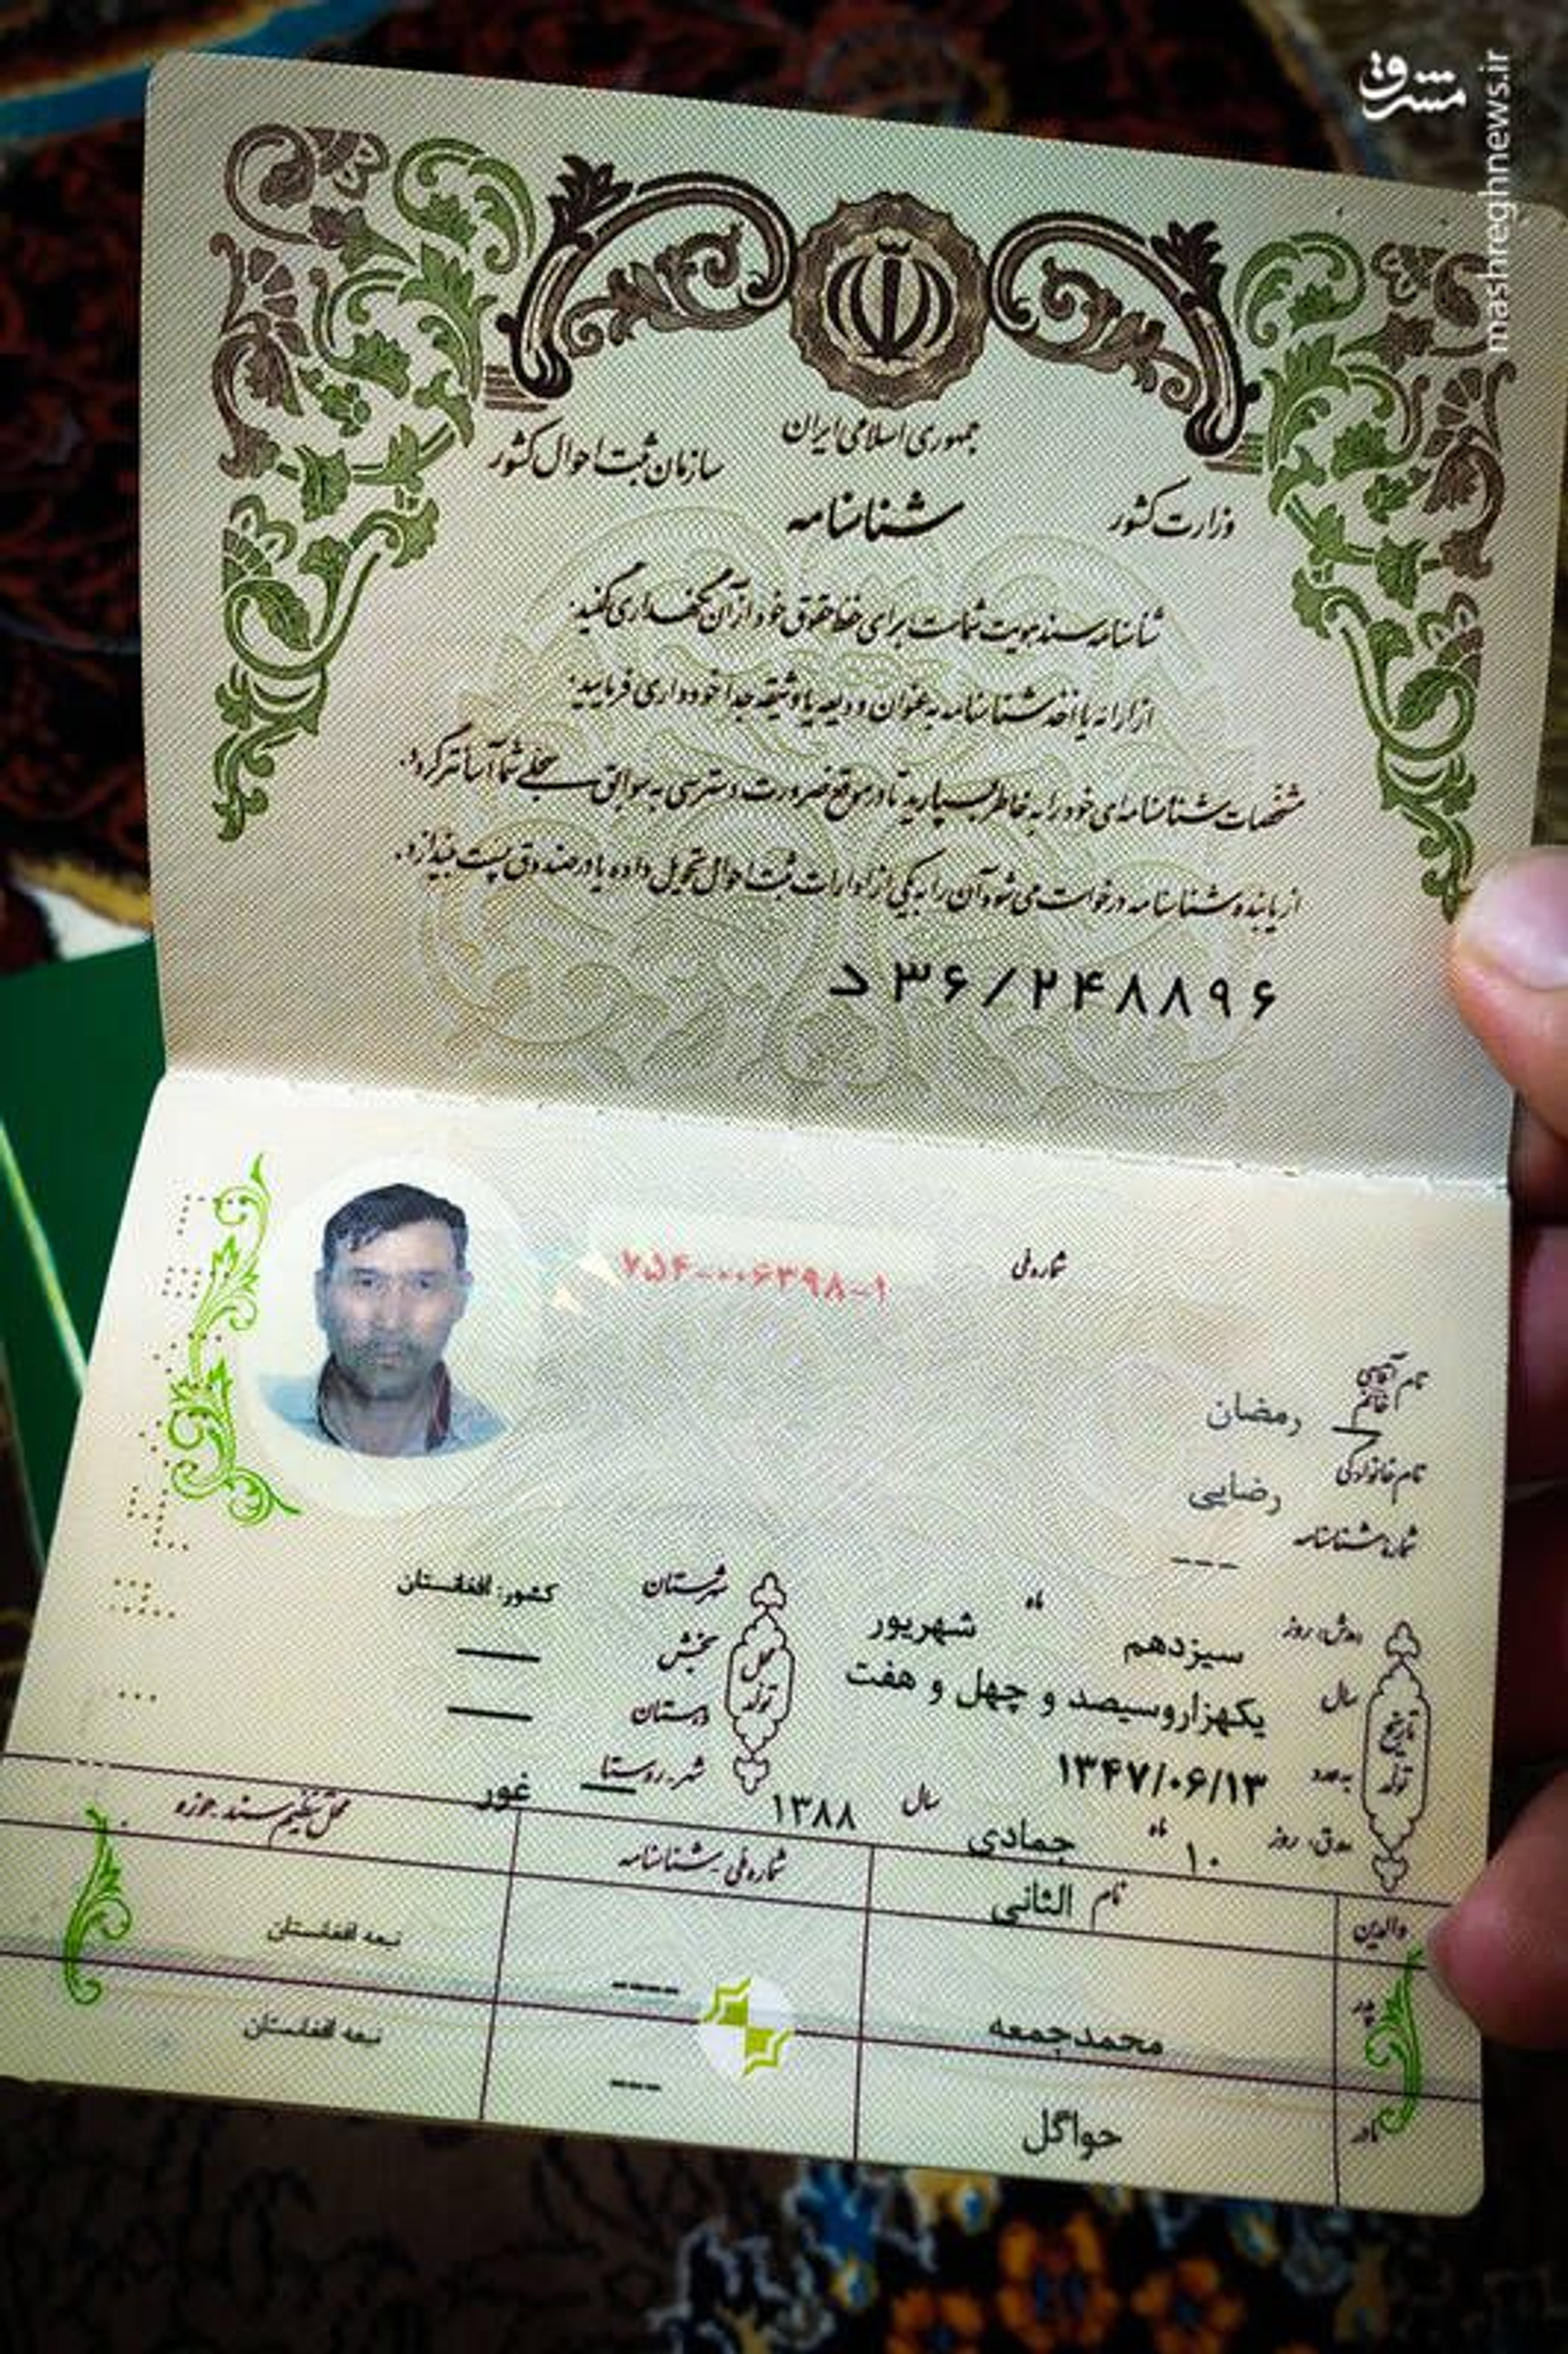 مشرق
mashreghnews.ir
جمهوری اسلامی ایران
وزارت کشور
سازمان ثبت احوال کشور
شناسنامه
شناسنامه سند هویت شماست برای حفظ حقوق خود از آن نگهداری کنید.
از ارائه یا اخذ شناسنامه به عنوان ودیعه یا وثیقه جدا خودداری فرمایید.
مشخصات شناسنامه‌ای خود را به خاطر بسپارید تا در موقع ضرورت دسترسی به سوابق سجلی شما آسانتر گردد.
از یابنده شناسنامه درخواست می شود آن را به یکی از ادارات ثبت احوال تحویل داده یا در صندوق پست بیندازد.
د۳۶/۲۴۸۸۹۶
شماره ملی
۷۵۴-۰۰۶۳۹۸-۱
نام آقای خانم رمضان
نام خانوادگی رضایی
شماره شناسنامه ---
تاریخ تولد
روز سیزدهم ماه شهریور
سال یکهزاروسیصد و چهل و هفت
به عدد ۱۳۴۷/۰۶/۱۳
ه.ق. روز ۱۰ ماه جمادی الثانی سال ۱۳۸۸
محل تولد
شهرستان کشور: افغانستان
بخش —
دهستان —
شهر-روستا غور
والدین نام شماره ملی-شناسنامه محل تنظیم سند-حوزه
پدر محمدجمعه ---- تبعه افغانستان
مادر حواگل --- تبعه افغانستان